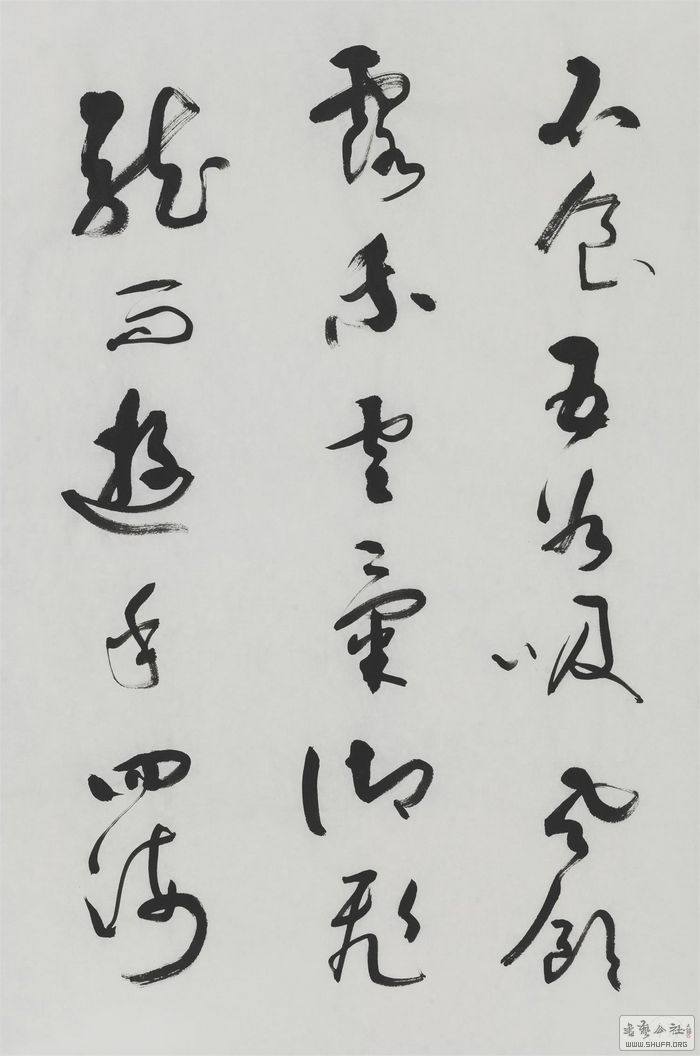 不食五谷吸風飲
露乘雲氣御飛
龍而遊乎四海
書藝公社
WWW.SHUFA.ORG